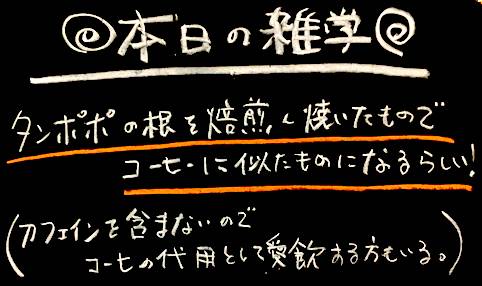 本日の雑学
タンポポの根を焙煎く焼いたもので
コーヒーに似たものになるらしい!
(カフェインを含まないので
コーヒの代用として愛飲する方もいる。)